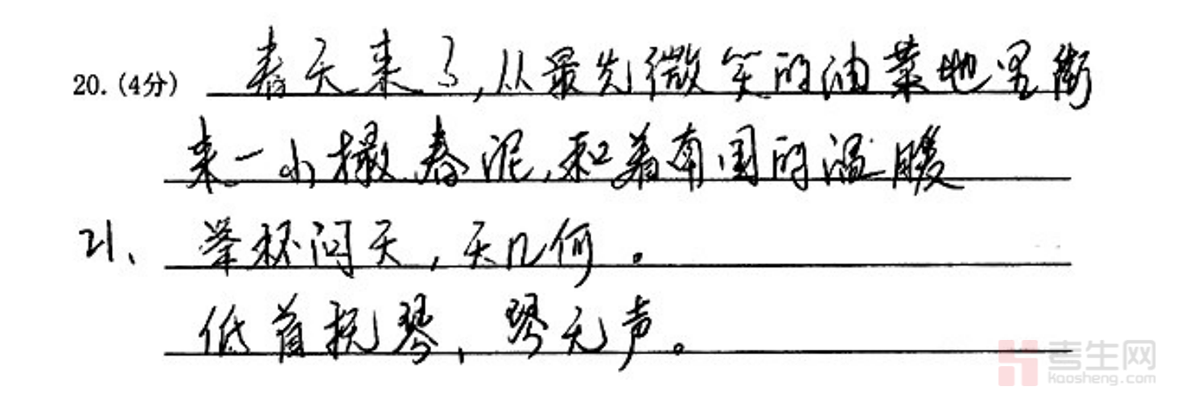 20.(4分) 春天来了,从最先微笑的油菜地里衔
来一小撮春泥,和着南国的温暖
21、举杯问天,天几何。
低首抚琴、琴无声。
考生网
kaosheng.com